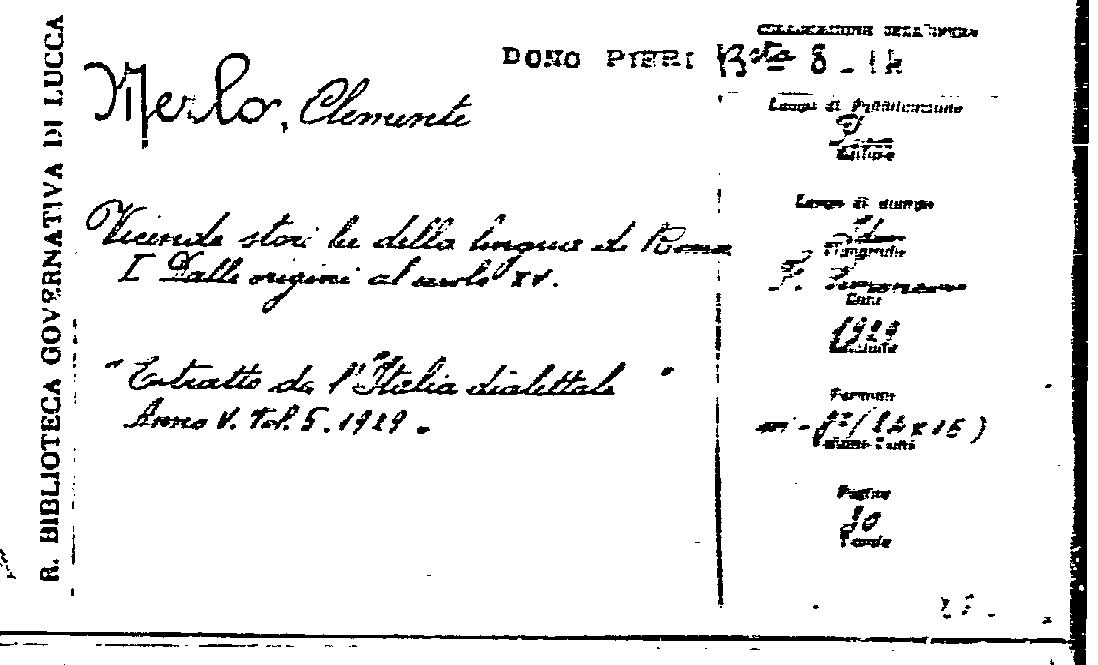 R. BIBLIOTECA GOVERNATIVA DI LUCCA
DONO PIERI Bsta 8 - 14
Merlo, Clemente
Vicende stori he della lingua di Roma
I Dalle origini al secolo XV.
"Estratto da l'"Italia dialettale"
Anno V. Vol. 5. 1929.
COLLOCAZIONE DELL'OPERA
Luogo di Pubblicazione
Editore
Luogo di stampa
Tipografia
Data
1929
Formato
(24 x 16)
Pagine
Tavole